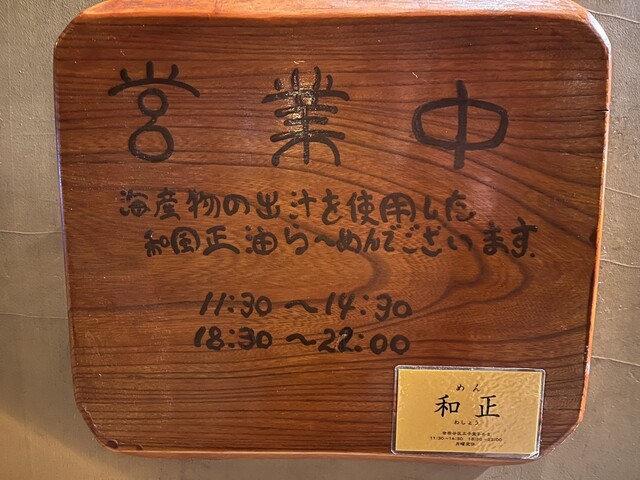 営業中
海産物の出汁を使用した
和風正油ら〜めんでございます。
11:30〜14:30
18:30〜22:00
めん
和正
わしょう
11:30〜14:30 18:30〜22:00